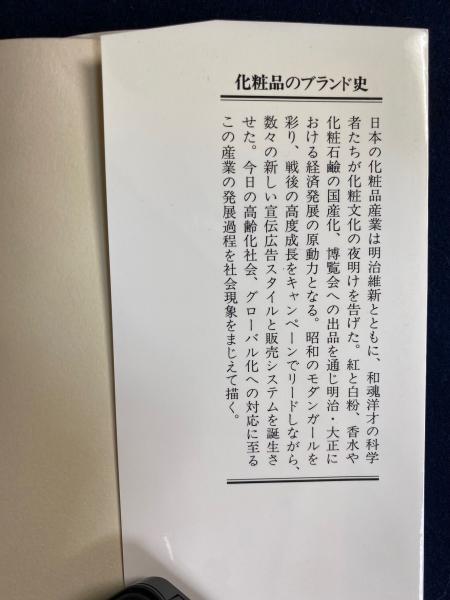 化粧品のブランド史
日本の化粧品産業は明治維新とともに、和魂洋才の科学
者たちが化粧文化の夜明けを告げた。紅と白粉、香水や
化粧石鹼の国産化、博覧会への出品を通じ明治・大正に
おける経済発展の原動力となる。昭和のモダンガールを
彩り、戦後の高度成長をキャンペーンでリードしながら、
数々の新しい宣伝広告スタイルと販売システムを誕生さ
せた。今日の高齢化社会、グローバル化への対応に至る
この産業の発展過程を社会現象をまじえて描く。